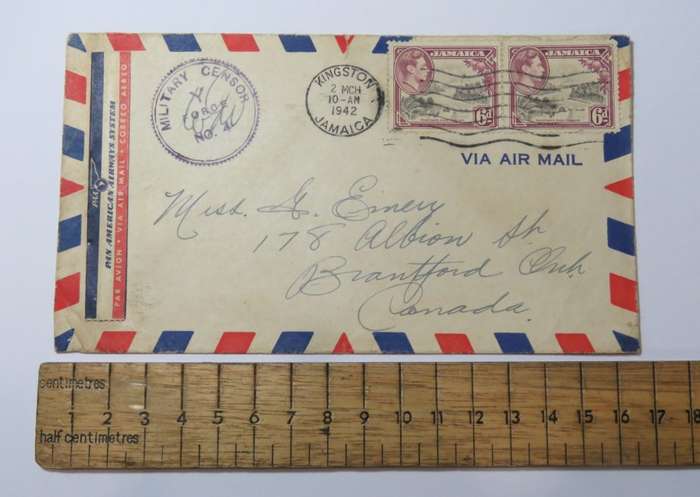 PAN AMERICAN AIRWAYS SYSTEM
PAR AVION • VIA AIR MAIL • CORREO AEREO
MILITARY CENSOR
Y
FORCE
NO. 4
KINGSTON
2 MCH
10-AM
1942
JAMAICA
JAMAICA
6d
JAMAICA
6d
VIA AIR MAIL
Miss. G. Emery
178 Albion St.
Brantford Ont.
Canada.
centimetres
1 2 3 4 5 6 7 8 9 10 11 12 13 14 15 16 17 18
half centimetres